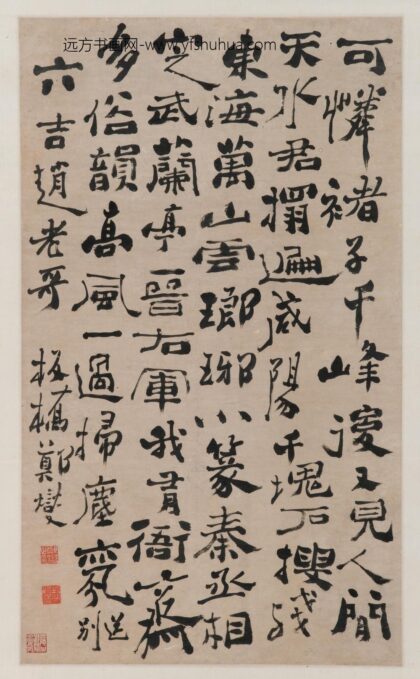 远方书画网-www.yfshuhua.com
可憐褚子千峰後又見人間
天水君搨遍咸陽千塊石搜殘
東海萬山雲瑯琊小篆秦丞相
定武蘭亭晉右軍我有衙齋
多俗韻高風一過掃塵氛送別
六吉趙老哥
板橋鄭燮